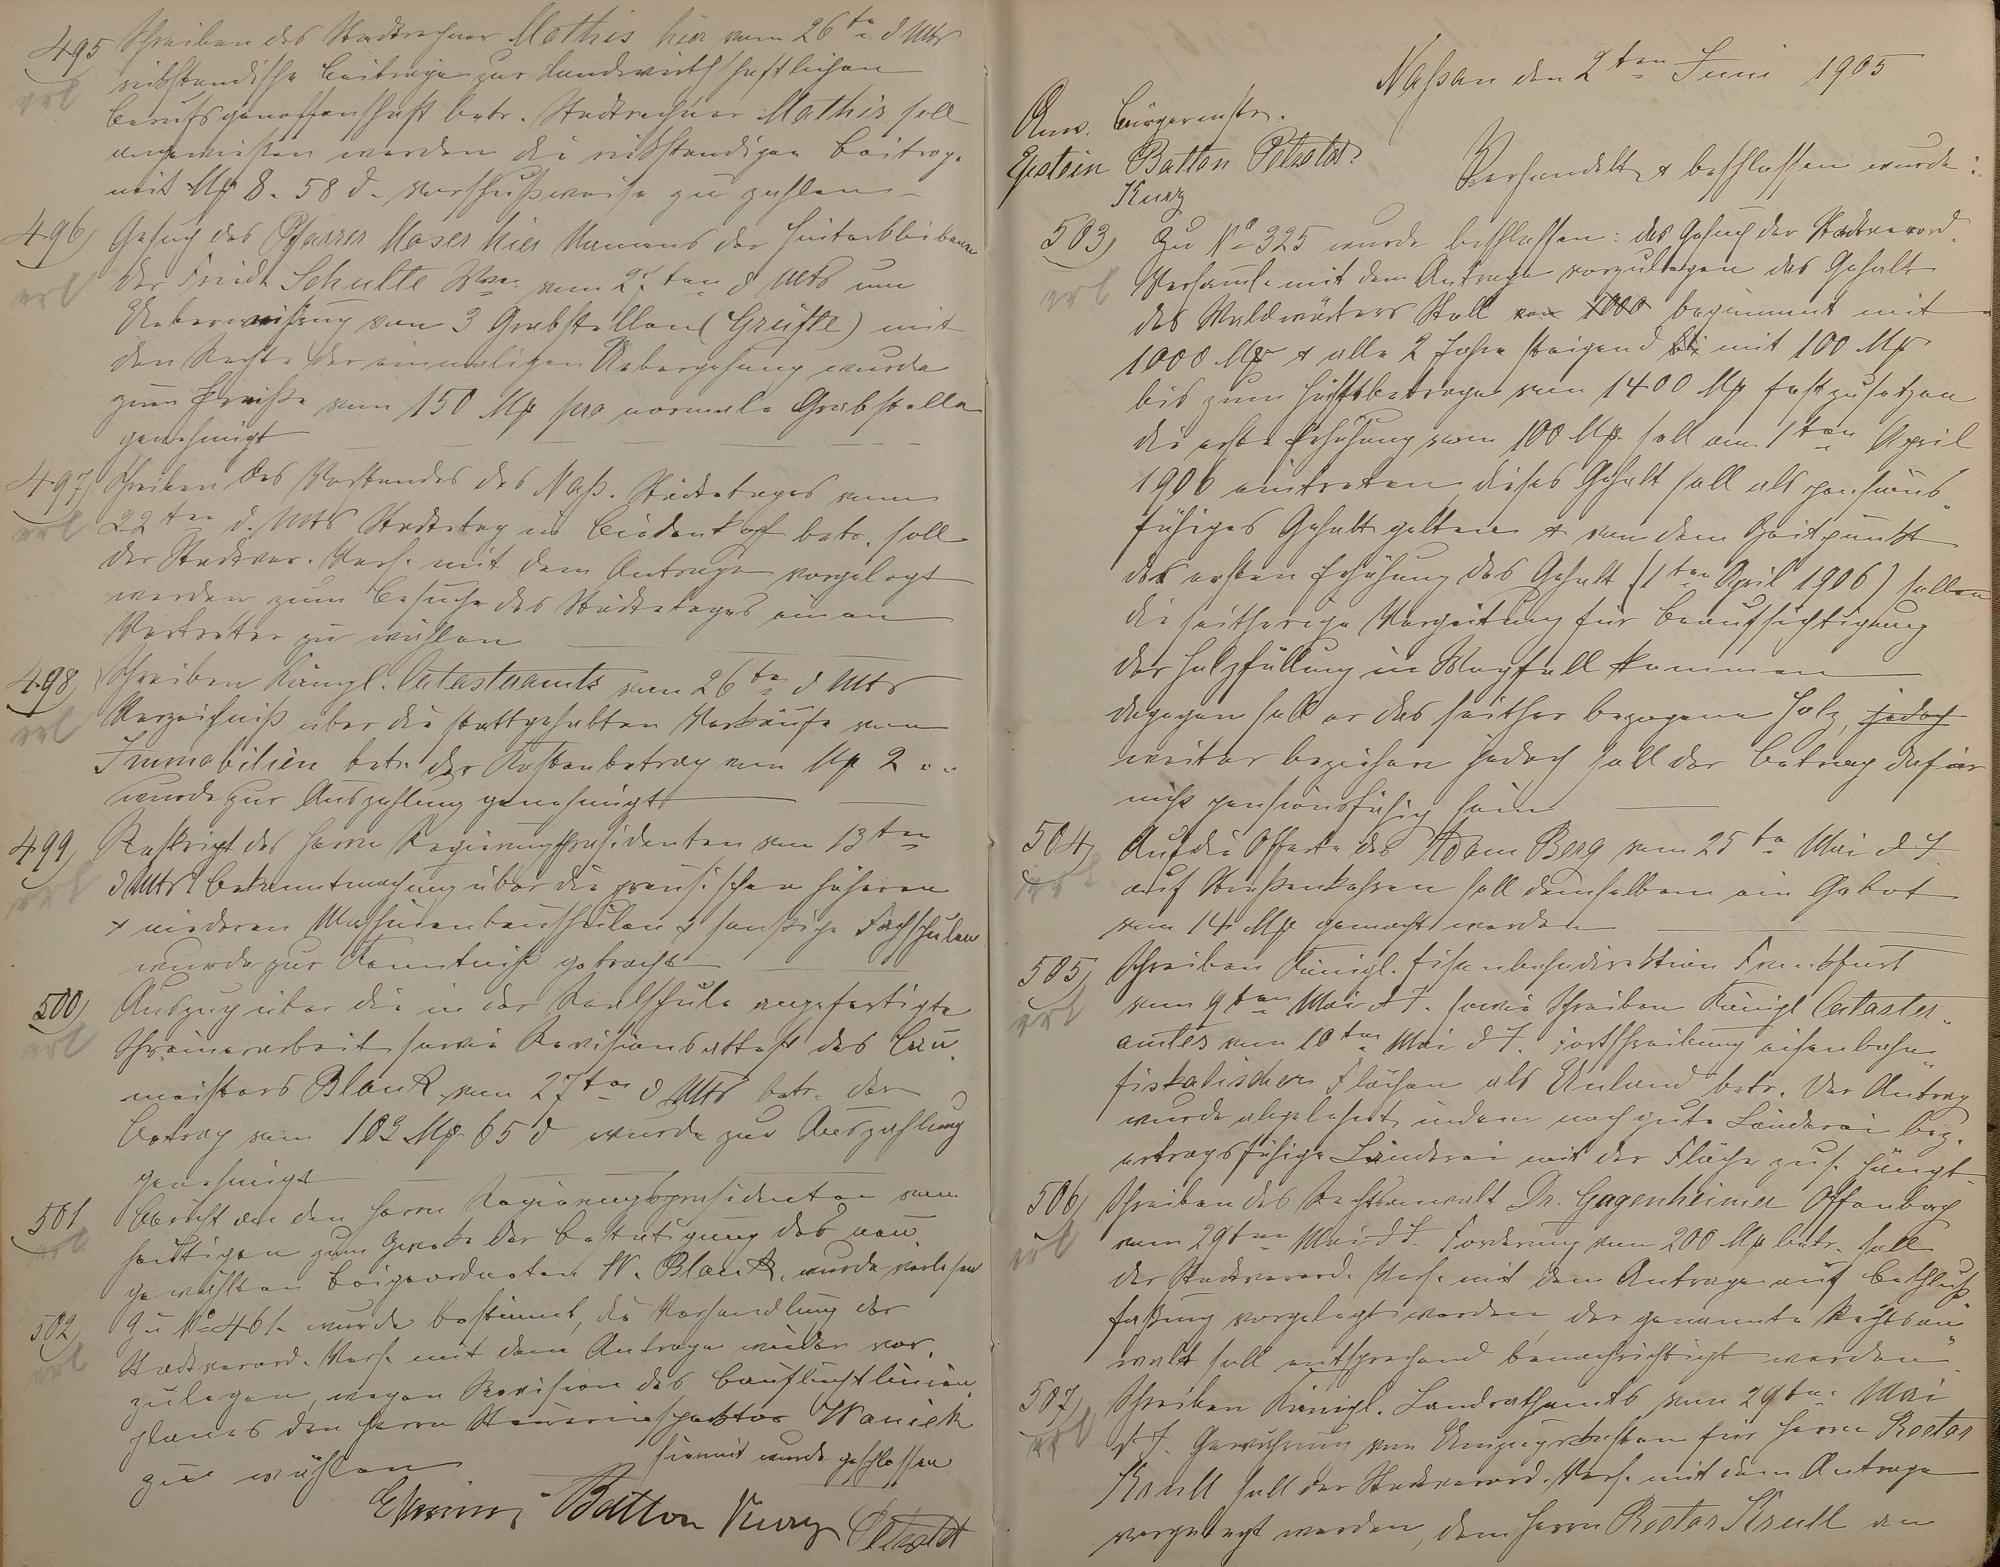 495 Schreiben des Stadtrechner Mathis hier vom 26ten d Mts
erl rückständische Beitrage zur Landwirthschaftlichen
Berufsgenossenschaft betr. Stadtrechner Mathis soll
angewiesen werden die rückständigen Beitrage
mit Mk 8. 58 d. vorschußweise zu zahlen
496) Gesuch des Pfarrer Moser hier Namens der Hinterbliebenen
erl der Friedr Schulte Wwe. vom 27ten d Mts um
Ueberweisung von 3 Grabstellen (Grüfte) mit
den Rechte der einmaligen Uebergehung wurde
zum Preiße vom 150 Mk pro normale Grabstelle
genehmigt
497) Schreiben des Vorstandes des Naß. Städtetages vom
erl 22ten d. Mts Städtetag in Biedenkopf betr. soll
der Stadtver. Vers. mit dem Antrage vorgelegt
werden zum Besuche des Städtetages einen
Vertreter zu wählen
498) Schreiben Königl. Catasteramts vom 26ten d Mts
erl Verzeichniß über die stattgehabten Verkäufe von
Immobilien betr. der Kostenbetrag von Mk 2 „ „
wurde zur Auszahlung genehmigt
499) Reskript des Herrn Regierungspräsidenten vom 13ten
erl d Mts Bekanntmachung über die preusischen höheren
+ niederen Maschinenbauschulen & sonstige Fachschulen
wurde zur Kenntniß gebracht
500) Auszug über die in der Realschule angefertigte
erl Schreinerarbeit sowie Revisionsattest des Bau-
meisters Blank vom 27ten d Mts betr. der
Betrag vom 102 Mk 65 d wurde zur Auszahlung
genehmigt
501 Bericht an den Herrn Regierungspräsidenten vom
erl heutigen zum Zwecke der Bestätigung des neu
gewählten Beigeordneten W. Blank, wurde verlesen
502) Zu No 461. wurde bestimmt, die Verhandlung der
erl Stadtverord. Vers. mit dem Antrage wieder vor-
zulegen, wegen Revision des Baufluchtlinien-
planes den Herrn Steuerinspektor Waniek
zu wählen
hiermit wurde geschlossen
Batton Kurz Petzoldt
Naßau den 2ten Juni 1905
Anw. Bürgermstr.
Epstein Batton Petzoldt.
Kurz
Verhandelt & beschlossen wurde:
503) Zu No 325 wurde beschlossen: das Gesuch der Stadtverord.
erl Versamle mit dem Antrage vorzulegen das Gehalt
des Waldwärters Stoll von 1000 beginnend mit
1000 Mk & alle 2 Jahre steigend bis mit 100 Mk
bis zum Höchstbetrage von 1400 Mk festzusetzen
die erste Erhöhung vom 100 Mk soll am 1ten April
1906 eintreten dieses Gehalt soll als pensions-
fähiges Gehalt gelten & von dem Zeitpunkt
der ersten Erhöhung des Gehalt (1ten April 1906) sollen
die seitherige Vergütung für Beaufsichtigung
der Holzfällung in Wegfall kommen
dagegen soll er das seither bezogene Holz, jedoch
weiter beziehen jedoch soll der Betrag dafür
nicht pensionsfähig sein
504) Auf die Offerte des Adam Berg vom 25ten Mai d J.
erl auf Straßenkehren soll demselben ein Gebot
vom 14 Mk gemacht werden
505) Schreiben Königl. Eisenbahndirektion Frankfurt
erl vom 9ten Mai d J. sowie Schreiben Königl Cataster-
amtes vom 10ten Mai d J. Fortschreibung eisenbahn-
fiskalischer Flächen als Unland betr. Der Antrag
wurde abgelehnt indem noch gute Länderei bez.
ertragsfähige Länderei mit der Fläche zus. hängt
506) Schreiben des Rechtsanwalt Dr. Gugenheimer Offenbach
erl vom 29ten Mai d J. Forderung vom 200 Mk betr. soll
der Stadtverord. Vers. mit dem Antrage auf Beschluß
fassung vorgelegt werden, der genannte Rechtsan-
walt soll entsprechend benachrichtigt werden
507) Schreiben Königl. Landrathsamts vom 29ten Mai
erl d J. Gewährung von Umzugskosten für Herrn Rector
Krull soll der Stadtverord. Vers. mit dem Antrage
vorgelegt werden, dem Herrn Rector Krull an